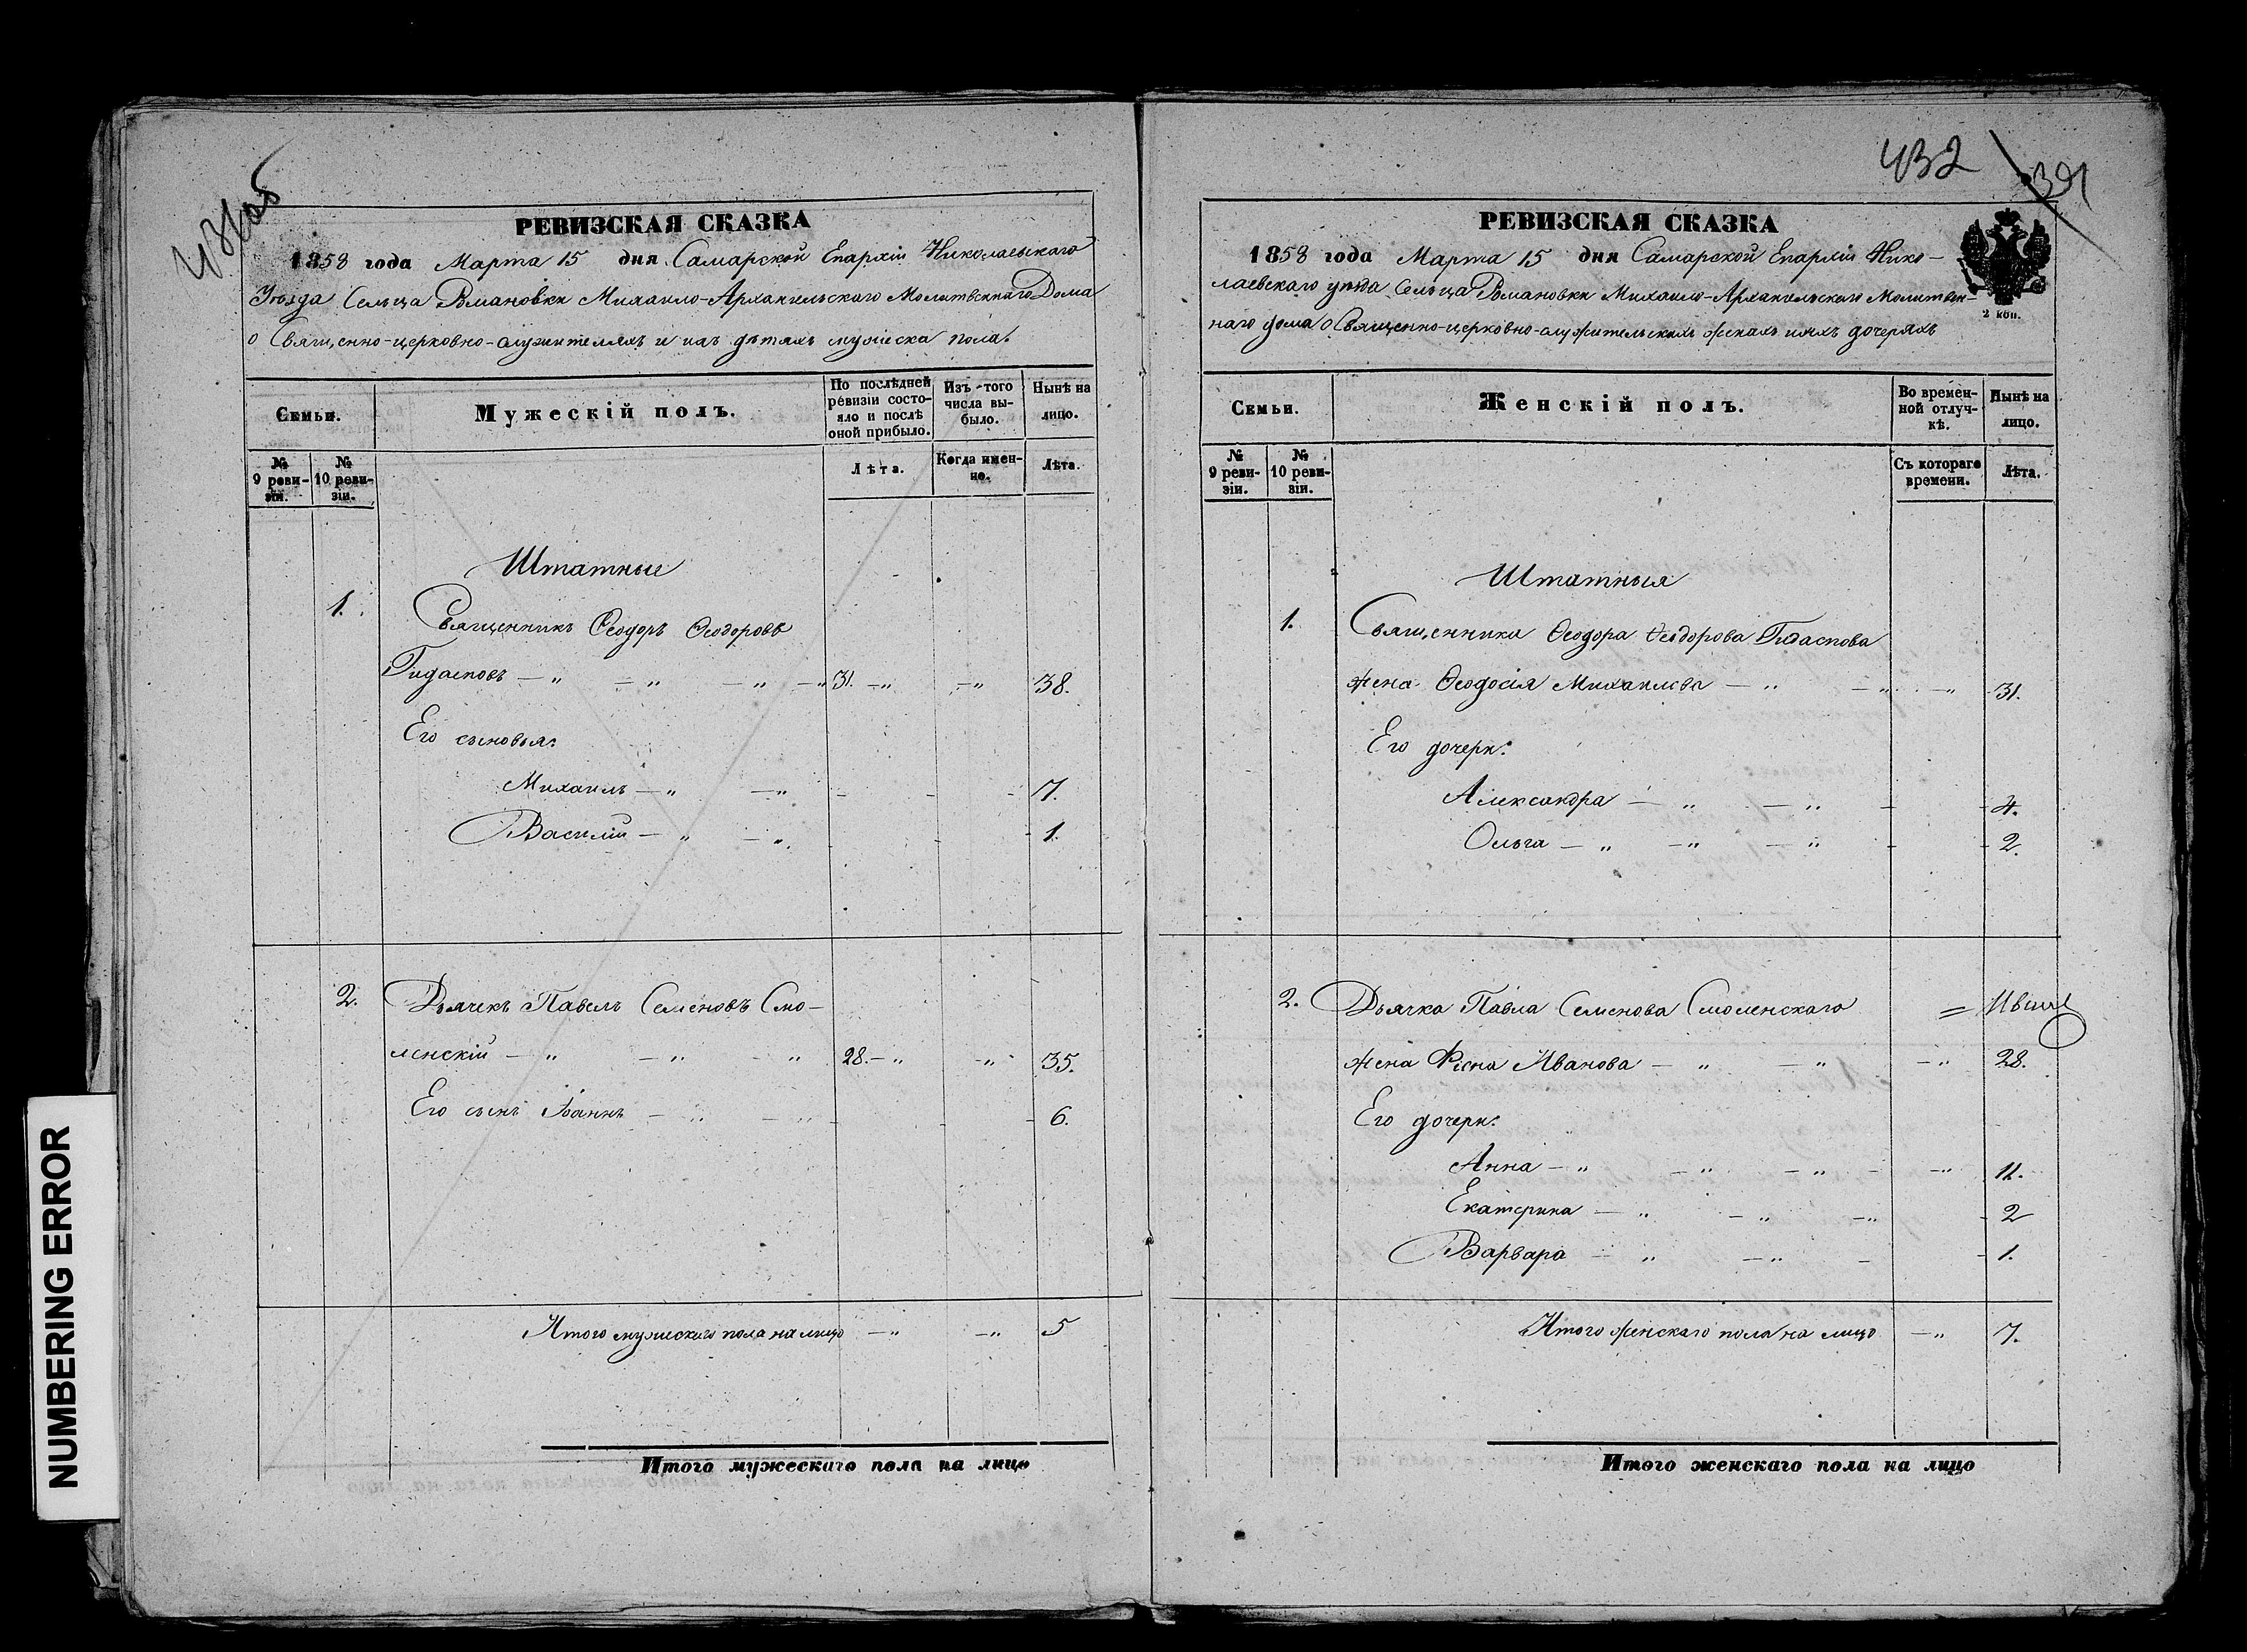 431 об
РЕВИЗСКАЯ СКАЗКА
1858 года Марта 15 дня Самарской Епархіи Николаевскаго
Уѣзда Сельца Романовки Михаило-Архангельскаго Молитвеннаго Дома
о Священно-церковно-служителяхъ и ихъ дѣтяхъ мужеска пола.
Семьи.
Мужескій полъ.
По послѣдней ревизіи состояло и послѣ оной прибыло.
Изъ того числа выбыло.
Нынѣ на лицо.
№ 9 ревизіи.
№ 10 ревизіи.
Лѣта.
Когда именно.
Лѣта.
Штатные
1. Священникъ Ѳеодоръ Ѳеодоровъ
Гидасповъ — " — " — " — " 31. — " — " 38.
Его сыновья:
Михаилъ — " — " - - - 7.
Василій — " — " - - - 1.
2. Дьячекъ Павелъ Семеновъ Смо-
ленскій — " — " " 28. — " — " 35.
Его сынъ Іоаннъ — " — " - - - 6.
Итого мужескаго пола на лицо — " — " 5
Итого мужескаго пола на лицо
432
391
РЕВИЗСКАЯ СКАЗКА
1858 года Марта 15 дня Самарской Епархіи Нико-
лаевскаго уѣзда Сельца Романовки Михаило-Архангельскаго Молитвен-
наго дома о Священно-церковно-служительскихъ женахъ и ихъ дочеряхъ
2 коп.
Семьи.
Женскій полъ.
Во временной отлучкѣ.
Нынѣ на лицо.
№ 9 ревизіи.
№ 10 ревизіи.
Съ котораго времени.
Лѣта.
Штатныя
1. Священника Ѳеодора Ѳеодорова Гидаспова
жена Ѳеодосія Михаилова — " — " — " 31.
Его дочери:
Александра — " — " - - 4.
Ольга — " — " — " - - 2.
2. Дьячка Павла Семенова Смоленскаго
жена Фіена Иванова — " — " — " 28.
Его дочери:
Анна — " — " — " - — " 11.
Екатерина — " — " — " - 2
Варвара — " — " — - 1.
Итого женскаго пола на лицо — " 7.
Итого женскаго пола на лицо
NUMBERING ERROR